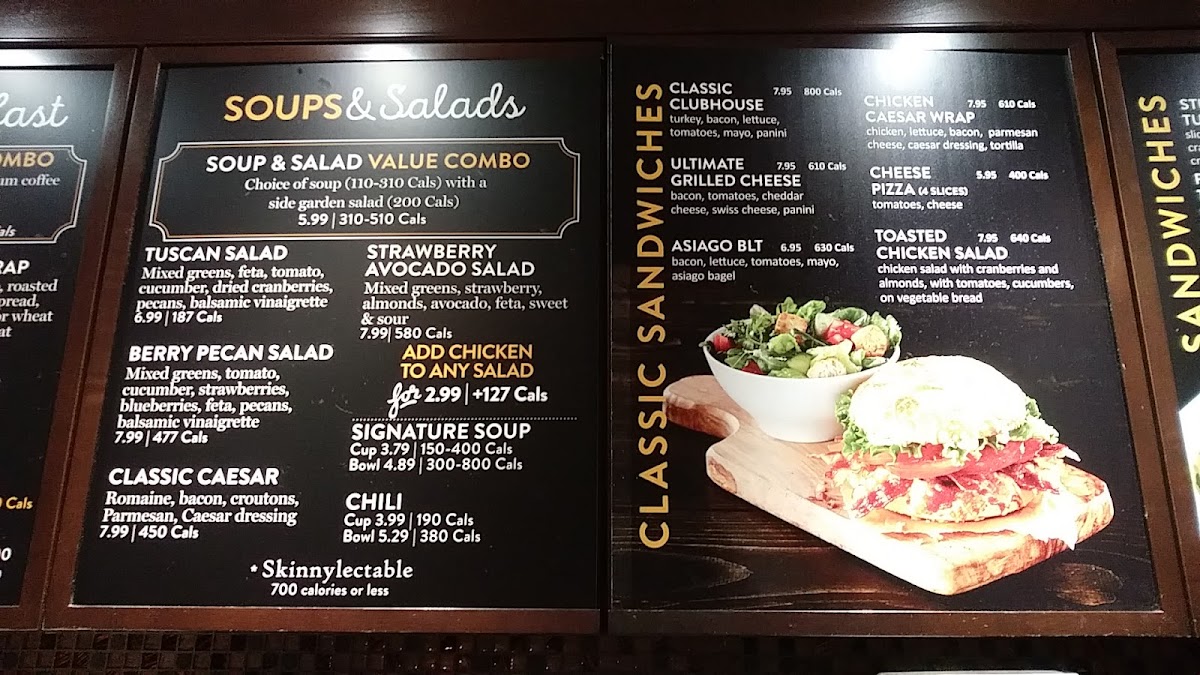 last
OMBO
um coffee
als
RAP
, roasted
pread,
or wheat
at
0 Cals
00
SOUPS & Salads
SOUP & SALAD VALUE COMBO
Choice of soup (110-310 Cals) with a
side garden salad (200 Cals)
5.99 | 310-510 Cals
TUSCAN SALAD
Mixed greens, feta, tomato,
cucumber, dried cranberries,
pecans, balsamic vinaigrette
6.99 | 187 Cals
BERRY PECAN SALAD
Mixed greens, tomato,
cucumber, strawberries,
blueberries, feta, pecans,
balsamic vinaigrette
7.99 | 477 Cals
CLASSIC CAESAR
Romaine, bacon, croutons,
Parmesan, Caesar dressing
7.99 | 450 Cals
STRAWBERRY
AVOCADO SALAD
Mixed greens, strawberry,
almonds, avocado, feta, sweet
& sour
7.99 | 580 Cals
ADD CHICKEN
TO ANY SALAD
for 2.99 | +127 Cals
SIGNATURE SOUP
Cup 3.79 | 150-400 Cals
Bowl 4.89 | 300-800 Cals
CHILI
Cup 3.99 | 190 Cals
Bowl 5.29 | 380 Cals
* Skinnylectable
700 calories or less
CLASSIC SANDWICHES
CLASSIC 7.95 800 Cals
CLUBHOUSE
turkey, bacon, lettuce,
tomatoes, mayo, panini
ULTIMATE 7.95 610 Cals
GRILLED CHEESE
bacon, tomatoes, cheddar
cheese, swiss cheese, panini
ASIAGO BLT 6.95 630 Cals
bacon, lettuce, tomatoes, mayo,
asiago bagel
CHICKEN 7.95 610 Cals
CAESAR WRAP
chicken, lettuce, bacon, parmesan
cheese, caesar dressing, tortilla
CHEESE 5.95 400 Cals
PIZZA (4 SLICES)
tomatoes, cheese
TOASTED 7.95 640 Cals
CHICKEN SALAD
chicken salad with cranberries and
almonds, with tomatoes, cucumbers,
on vegetable bread
SANDWICHES
ST
TU
slic
cra